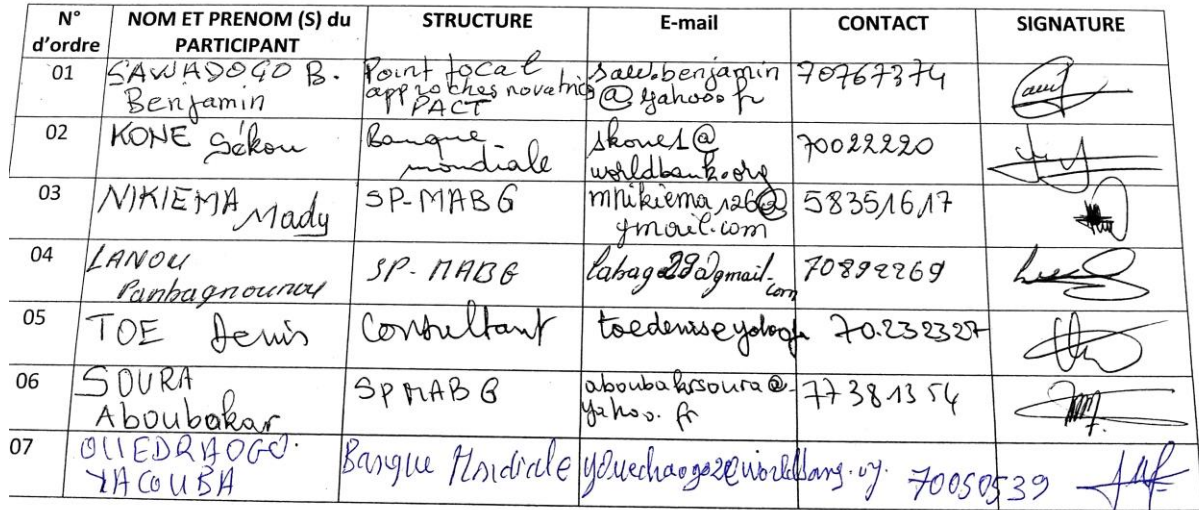 N° d'ordre NOM ET PRENOM (S) du PARTICIPANT STRUCTURE E-mail CONTACT SIGNATURE
01 SAWADOGO B. Benjamin Point focal approches novatrices PACT saw.benjamin@yahoo.fr 70767374
02 KONE Sékou Banque mondiale skone1@worldbank.org 70022220
03 NIKIEMA Mady SP-MABG mnikiema126@gmail.com 58351617
04 LANOU Panbagnounou SP-MABG labage29@gmail.com 70892269
05 TOE Denis Consultant 70.232327
06 SOURA Aboubakar SPMABG aboubakrsoura@yahoo.fr 77381354
07 OUEDRAOGO YACOUBA Banque Mondiale 70050539